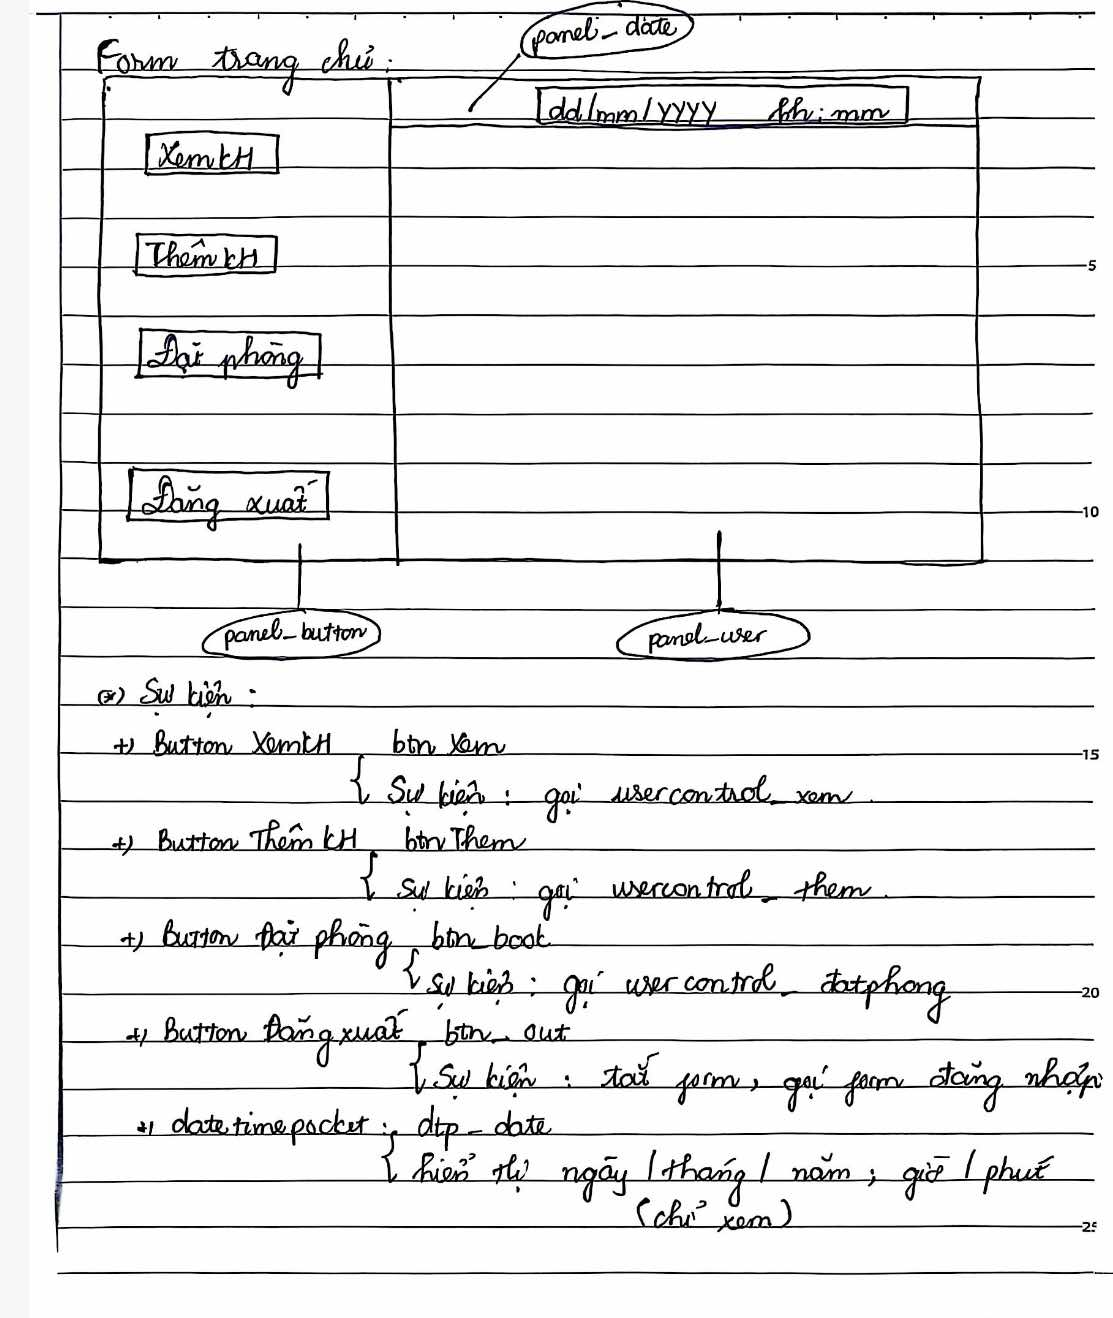 panel_date
Form trang chủ :
dd/mm/yyyy hh:mm
Xem KH
Thêm KH
Đặt phòng
Đăng xuất
panel_button
panel_user
*) Sự kiện :
+) Button Xem KH btn Xem
{ Sự kiện : gọi usercontrol_xem.
+) Button Thêm KH btn Them
{ Sự kiện : gọi usercontrol_them.
+) Button Đặt phòng btn_book
{ Sự kiện : gọi usercontrol_datphong
+) Button Đăng xuất btn_out
{ Sự kiện : tắt form, gọi form đăng nhập
+) datetimepocket : dtp_date
{ hiển thị ngày / tháng / năm ; giờ / phút
(chỉ xem)
5
10
15
20
25